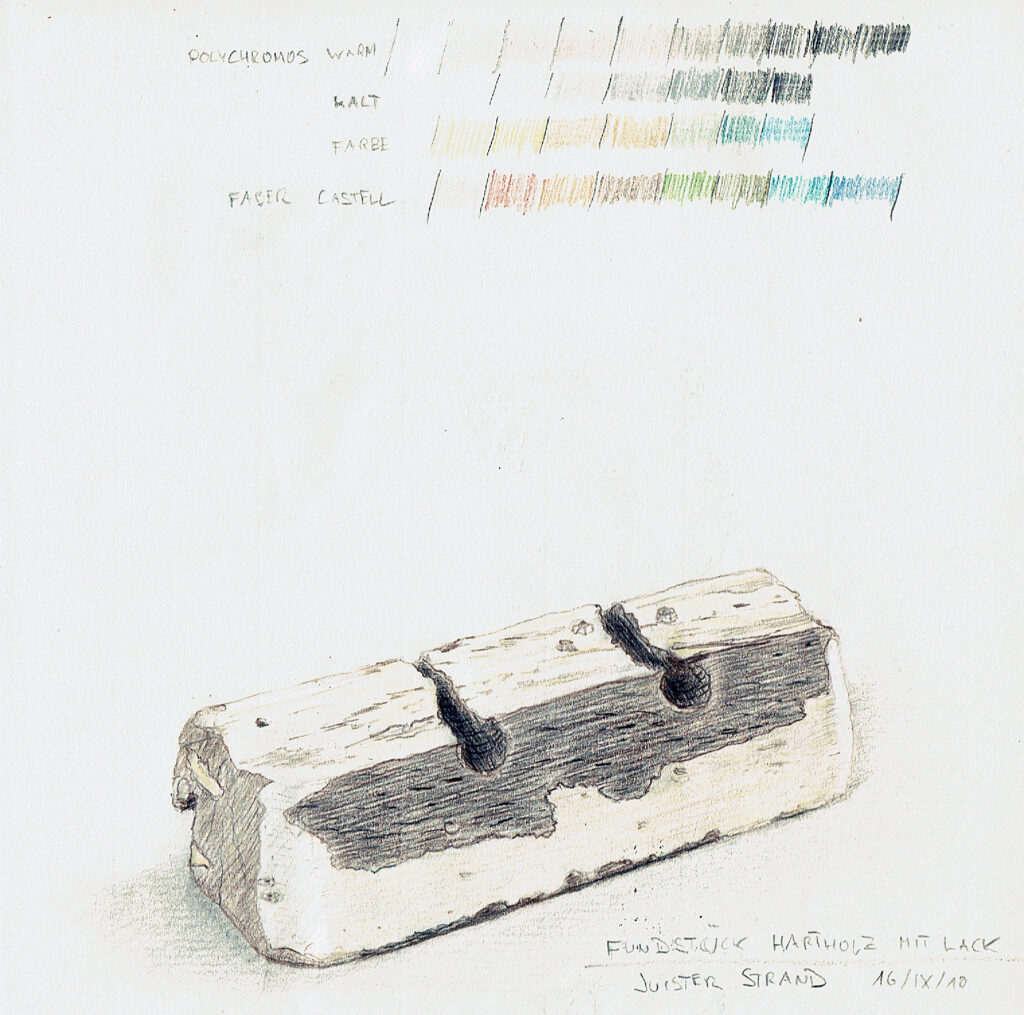 POLYCHROMOS WARM
KALT
FARBE
FABER CASTELL
FUNDSTÜCK HARTHOLZ MIT LACK
JUISTER STRAND 16/IX/10